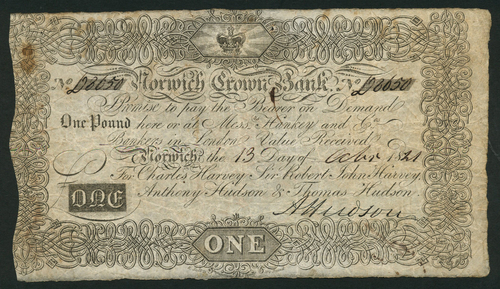 No. L8050 Norwich Crown Bank No. L8050
Promise to pay the Bearer on Demand
One Pound here or at Messrs. Hankey and Co.
Bankers in London Value Received
Norwich the 13 Day of Octbr 1821
For Charles Harvey Sir Robert John Harvey,
Anthony Hudson & Thomas Hudson.
ONE AHudson
ONE